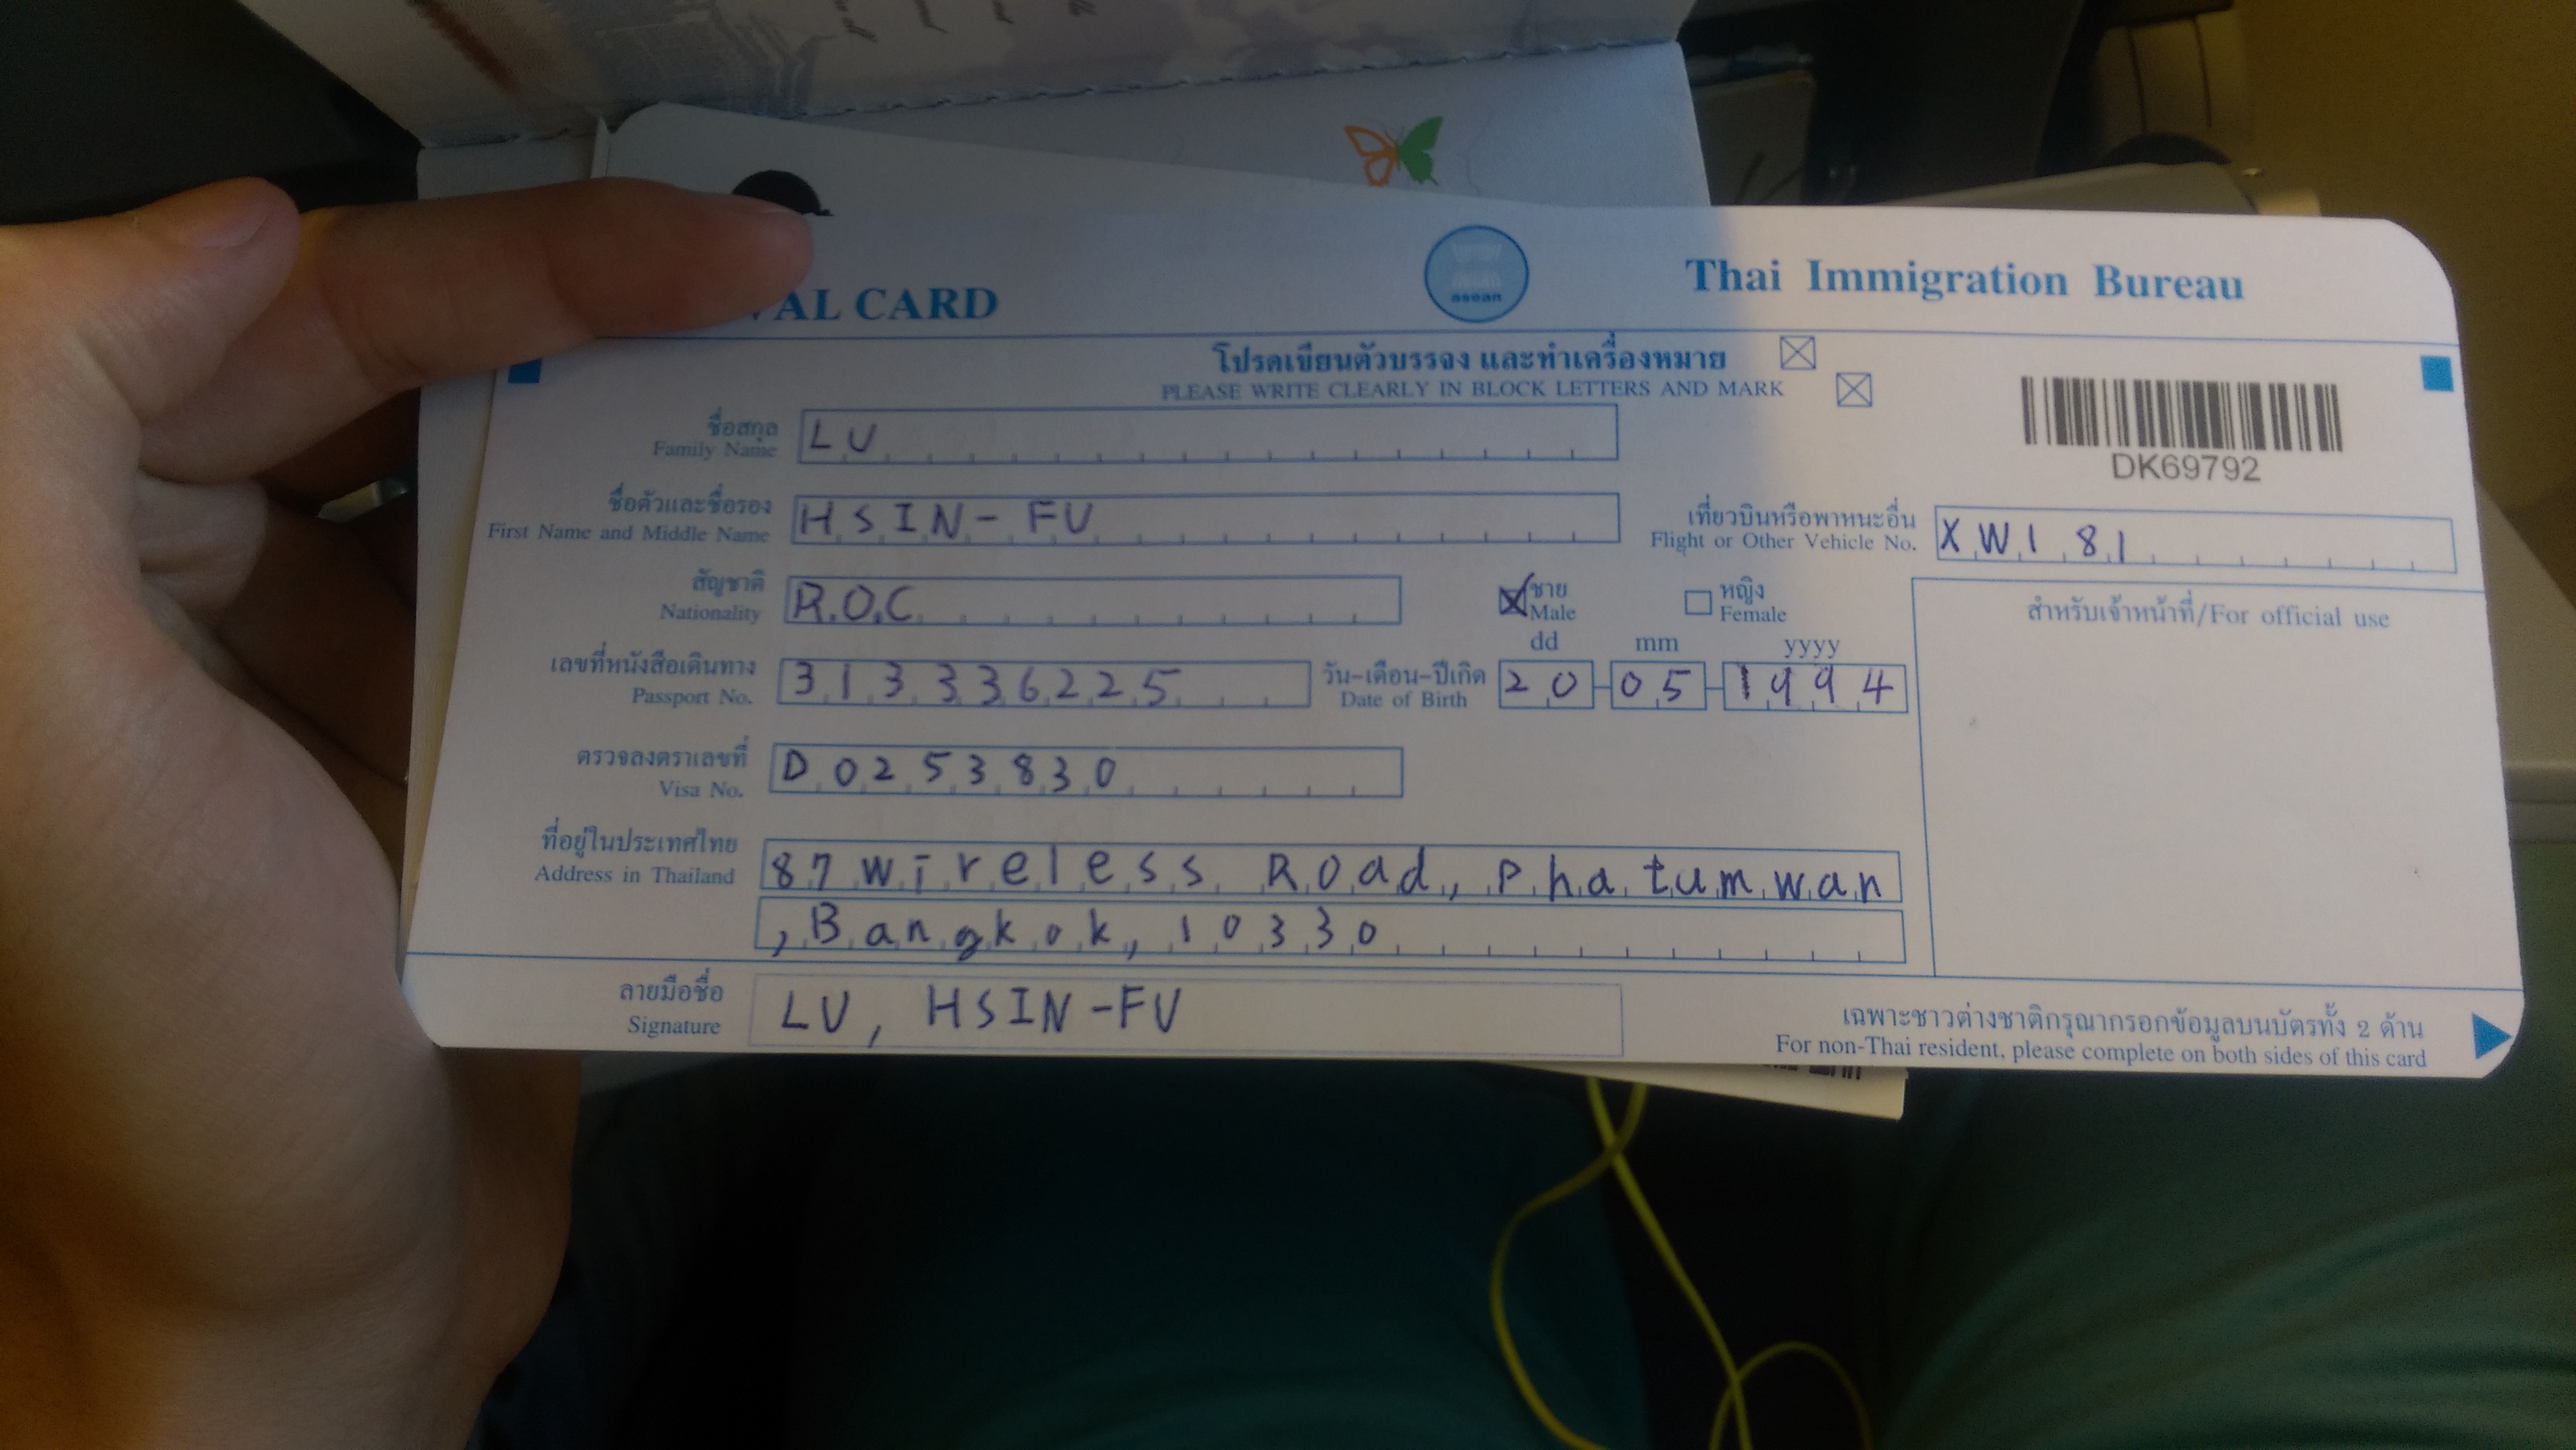 VAL CARD
asean
Thai Immigration Bureau
โปรดเขียนตัวบรรจง และทำเครื่องหมาย
PLEASE WRITE CLEARLY IN BLOCK LETTERS AND MARK
DK69792
ชื่อสกุล
Family Name
LU
ชื่อตัวและชื่อรอง
First Name and Middle Name
HSIN-FU
เที่ยวบินหรือพาหนะอื่น
Flight or Other Vehicle No.
XW181
สัญชาติ
Nationality
R.O.C
ชาย
Male
หญิง
Female
สำหรับเจ้าหน้าที่/For official use
เลขที่หนังสือเดินทาง
Passport No.
313336225
วัน-เดือน-ปีเกิด
Date of Birth
dd mm yyyy
20-05-1994
ตรวจลงตราเลขที่
Visa No.
D0253830
ที่อยู่ในประเทศไทย
Address in Thailand
87 wireless Road, Phatumwan
, Bangkok, 10330
ลายมือชื่อ
Signature
LU, HSIN-FU
เฉพาะชาวต่างชาติกรุณากรอกข้อมูลบนบัตรทั้ง 2 ด้าน
For non-Thai resident, please complete on both sides of this card